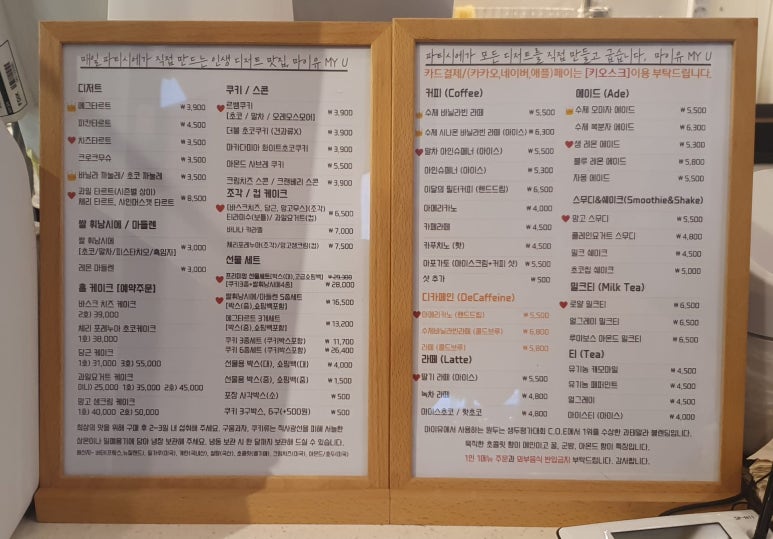 매일 파티시에가 직접 만드는 인생 디저트 맛집, 마이유 MY U
디저트
에그타르트 ₩3,900
피칸타르트 ₩4,500
치즈타르트 ₩3,500
크로크무슈 ₩3,500
바닐라 까눌레/ 초코 까눌레 ₩3,500
과일 타르트(시즌별 상이)
체리 타르트, 샤인머스캣 타르트 ₩8,500
쌀 휘낭시에 / 마들렌
쌀 휘낭시에
[초코/말차/피스타치오/흑임자] ₩3,000
레몬 마들렌 ₩3,000
홀 케이크 [예약주문]
바스크 치즈 케이크
2호) 39,000
체리 포레누아 초코케이크
1호) 38,000
당근 케이크
1호) 31,000 3호) 55,000
과일요거트 케이크
미니) 25,000 1호) 35,000 2호) 45,000
망고 생크림 케이크
1호) 40,000 2호) 50,000
쿠키 / 스콘
르뱅쿠키
[초코 / 말차 / 오레오스모어] ₩3,900
더블 초코쿠키 (견과류X) ₩3,900
마카다미아 화이트초코쿠키 ₩3,900
아몬드 사브레 쿠키 ₩5,500
크림치즈 스콘 / 크랜베리 스콘 ₩3,900
조각 / 컵 케이크
[바스크치즈, 당근, 망고무스](조각)
티라미수(보틀)/ 과일요거트(컵) ₩6,500
바나나 카라멜 ₩7,000
체리포레누아(조각)/망고생크림(컵) ₩7,500
선물 세트
프리미엄 선물세트[박스(대),고급쇼핑백] ₩29,300
[쿠키3종+쌀휘낭시에4종] ₩28,000
쌀휘낭시에/마들렌 5종세트
[박스(중),쇼핑백포함] ₩16,500
에그타르트 3개세트
[박스(중),쇼핑백포함] ₩13,200
쿠키 3종세트 (쿠키박스포함) ₩11,700
쿠키 6종세트 (쿠키박스포함) ₩26,400
선물용 박스(대), 쇼핑백(대) ₩4,000
선물용 박스(중), 쇼핑백(중) ₩1,500
포장 사각박스(소) ₩500
쿠키 3구박스, 6구(+500원) ₩500
최상의 맛을 위해 구매 후 2~3일 내 섭취해 주세요. 구움과자, 쿠키류는 직사광선을 피해 서늘한
상온이나 밀폐용기에 담아 냉장 보관해 주세요. 냉동 보관 시 한 달까지 보관해 드실 수 있습니다.
파티시에가 모든 디저트를 직접 만들고 굽습니다, 마이유 MY U
카드결제/(카카오,네이버,애플)페이는 [키오스크]이용 부탁드립니다.
커피 (Coffee)
수제 바닐라빈 라떼 ₩5,500
수제 시나몬 바닐라빈 라떼 (아이스) ₩6,300
말차 아인슈페너 (아이스) ₩5,500
아인슈페너 (아이스) ₩5,300
이달의 필터커피 (핸드드립) ₩6,500
아메리카노 ₩4,000
카페라떼 ₩4,500
카푸치노 (핫) ₩4,500
아포가토 (아이스크림+커피 샷) ₩5,500
샷 추가 ₩500
디카페인 (DeCaffeine)
아메리카노 (핸드드립) ₩5,500
수제바닐라빈라떼 (콜드브루) ₩6,800
라떼 (콜드브루) ₩5,800
라떼 (Latte)
딸기 라떼 (아이스) ₩5,500
녹차 라떼 ₩4,800
아이스초코 / 핫초코 ₩4,800
에이드 (Ade)
수제 오미자 에이드 ₩5,500
수제 복분자 에이드 ₩6,300
생 레몬 에이드 ₩5,300
블루 레몬 에이드 ₩5,800
자몽 에이드 ₩5,500
스무디&쉐이크(Smoothie&Shake)
망고 스무디 ₩5,500
플레인요거트 스무디 ₩4,800
밀크 쉐이크 ₩4,500
초코칩 쉐이크 ₩5,000
밀크티 (Milk Tea)
로얄 밀크티 ₩6,500
얼그레이 밀크티 ₩6,500
루이보스 아몬드 밀크티 ₩6,500
티 (Tea)
유기농 캐모마일 ₩4,500
유기농 페퍼민트 ₩4,500
얼그레이 ₩4,500
아이스티 (아이스) ₩4,000
마이유에서 사용하는 원두는 생두평가대회 C.O.E에서 1위를 수상한 과테말라 블렌딩입니다.
묵직한 초콜릿 향이 메인이고 꿀, 군밤, 아몬드 향이 특징입니다.
1인 1메뉴 주문과 외부음식 반입금지 부탁드립니다. 감사합니다.